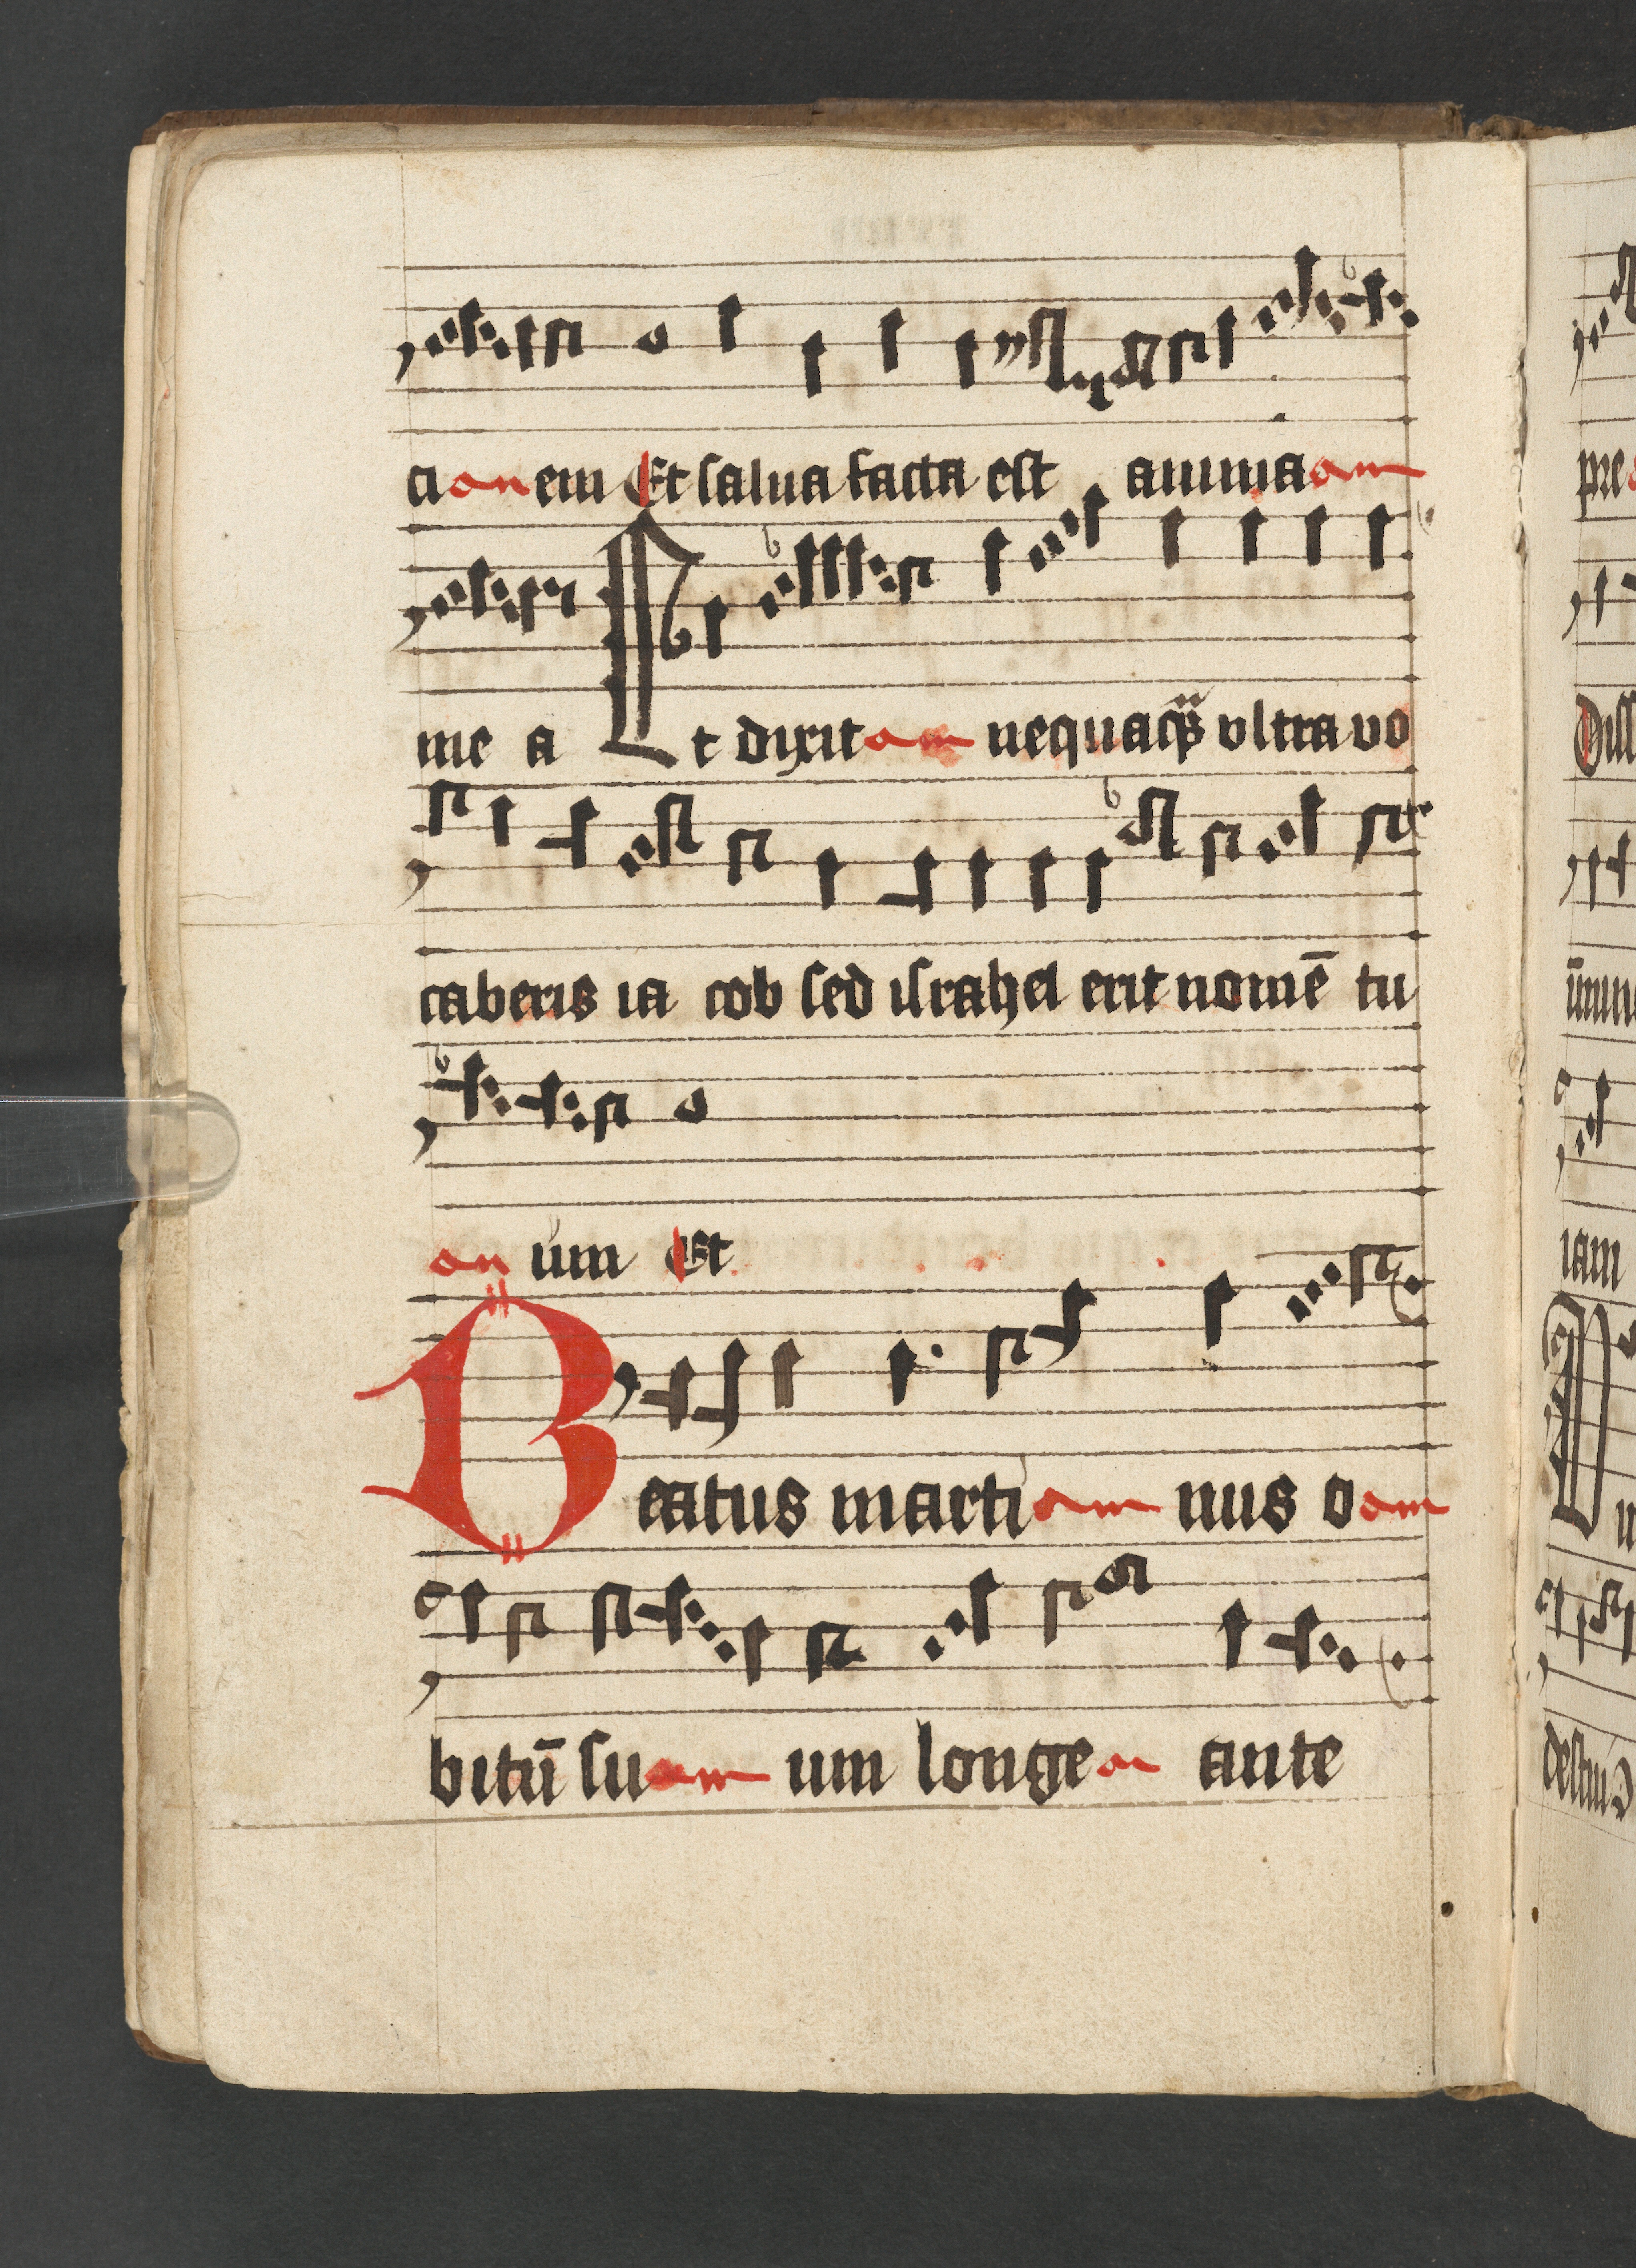 cionem Et salua facta est anima
me a Et dixit nequaqᷓ vltra vo
caberis ia cob sed israhel erit nomē tu
um Et
Beatus marti nus o
bitū su um longe ante